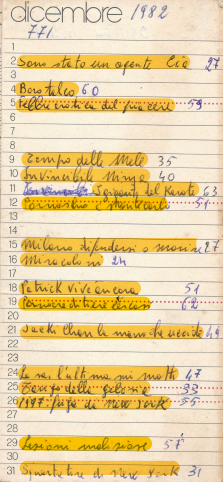 dicembre 1982
771
1
2 Sono stato un agente Cia 27
3
4 Borotalco 60
5 Febbre erotica del piacere 59
6
7
8
9 Tempo delle Mele 35
10 Invincibile Ninja 40
11 I giganti del Karate 63
12 Pornoshow a Montecarlo 51
13
14
15 Milano difendersi o morire 27
16 Miracoloni 24
17
18 Patrick vive ancora 51
19 62
20
21 Jackie Chan la mano che uccide 49
22
23
24 47
25 Tempo delle 32
26 1997 fuga da New York 55
27
28
29 Lezioni maliziose 57
30
31 Squartatore di New York 31